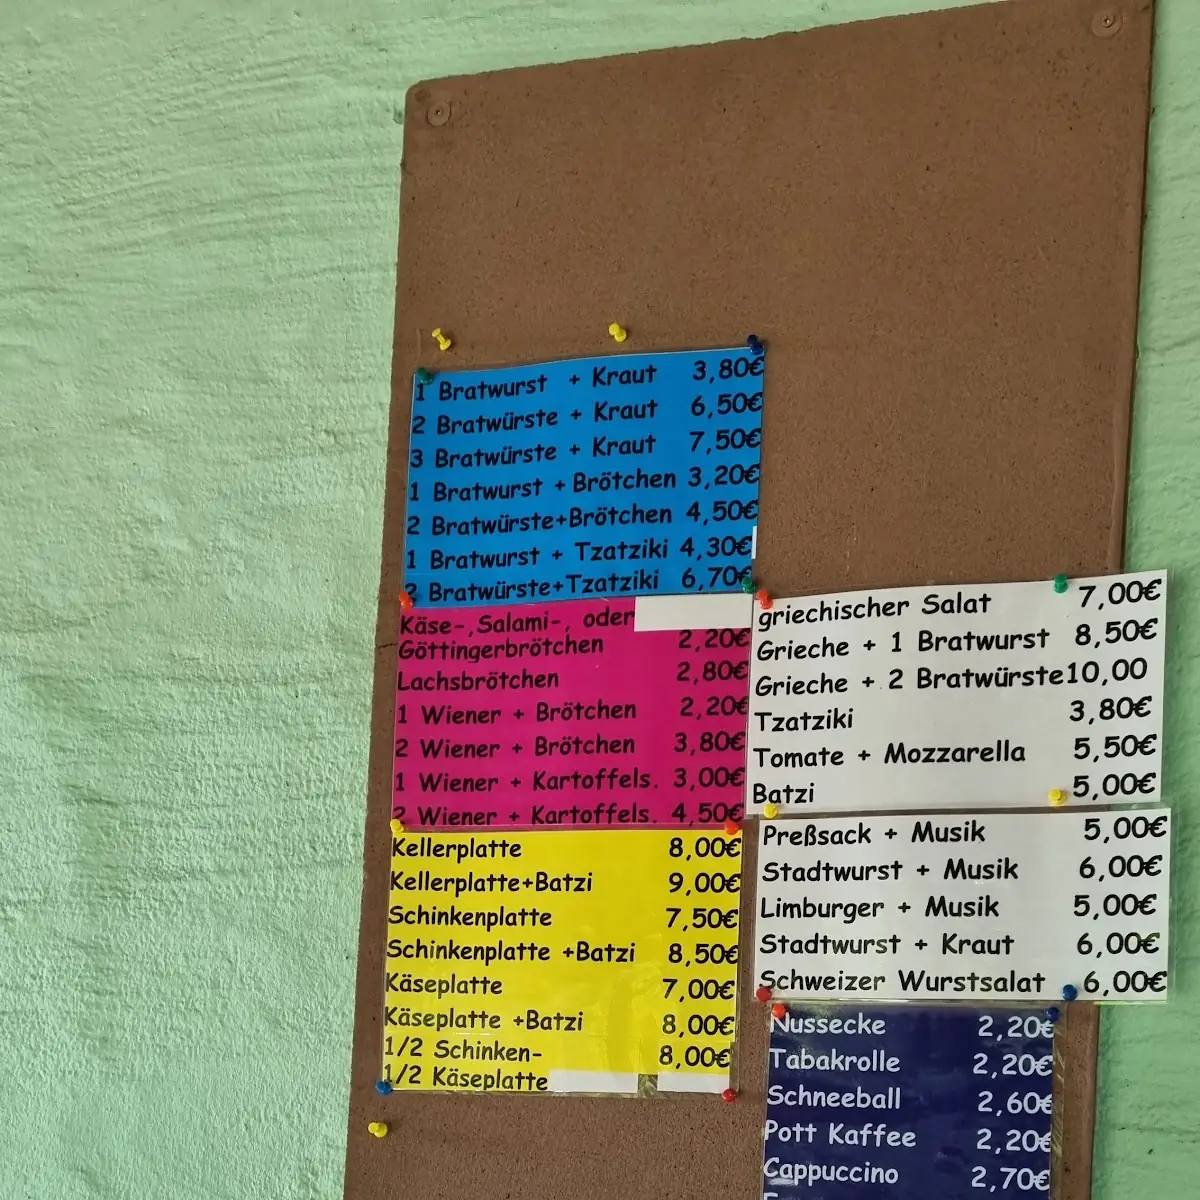 1 Bratwurst + Kraut 3,80€
2 Bratwürste + Kraut 6,50€
3 Bratwürste + Kraut 7,50€
1 Bratwurst + Brötchen 3,20€
2 Bratwürste+Brötchen 4,50€
1 Bratwurst + Tzatziki 4,30€
2 Bratwürste+Tzatziki 6,70€
Käse-,Salami-, oder
Göttingerbrötchen 2,20€
Lachsbrötchen 2,80€
1 Wiener + Brötchen 2,20€
2 Wiener + Brötchen 3,80€
1 Wiener + Kartoffels. 3,00€
2 Wiener + Kartoffels. 4,50€
Kellerplatte 8,00€
Kellerplatte+Batzi 9,00€
Schinkenplatte 7,50€
Schinkenplatte +Batzi 8,50€
Käseplatte 7,00€
Käseplatte +Batzi 8,00€
1/2 Schinken- 8,00€
1/2 Käseplatte
griechischer Salat 7,00€
Grieche + 1 Bratwurst 8,50€
Grieche + 2 Bratwürste10,00
Tzatziki 3,80€
Tomate + Mozzarella 5,50€
Batzi 5,00€
Preßsack + Musik 5,00€
Stadtwurst + Musik 6,00€
Limburger + Musik 5,00€
Stadtwurst + Kraut 6,00€
Schweizer Wurstsalat 6,00€
Nussecke 2,20€
Tabakrolle 2,20€
Schneeball 2,60€
Pott Kaffee 2,20€
Cappuccino 2,70€